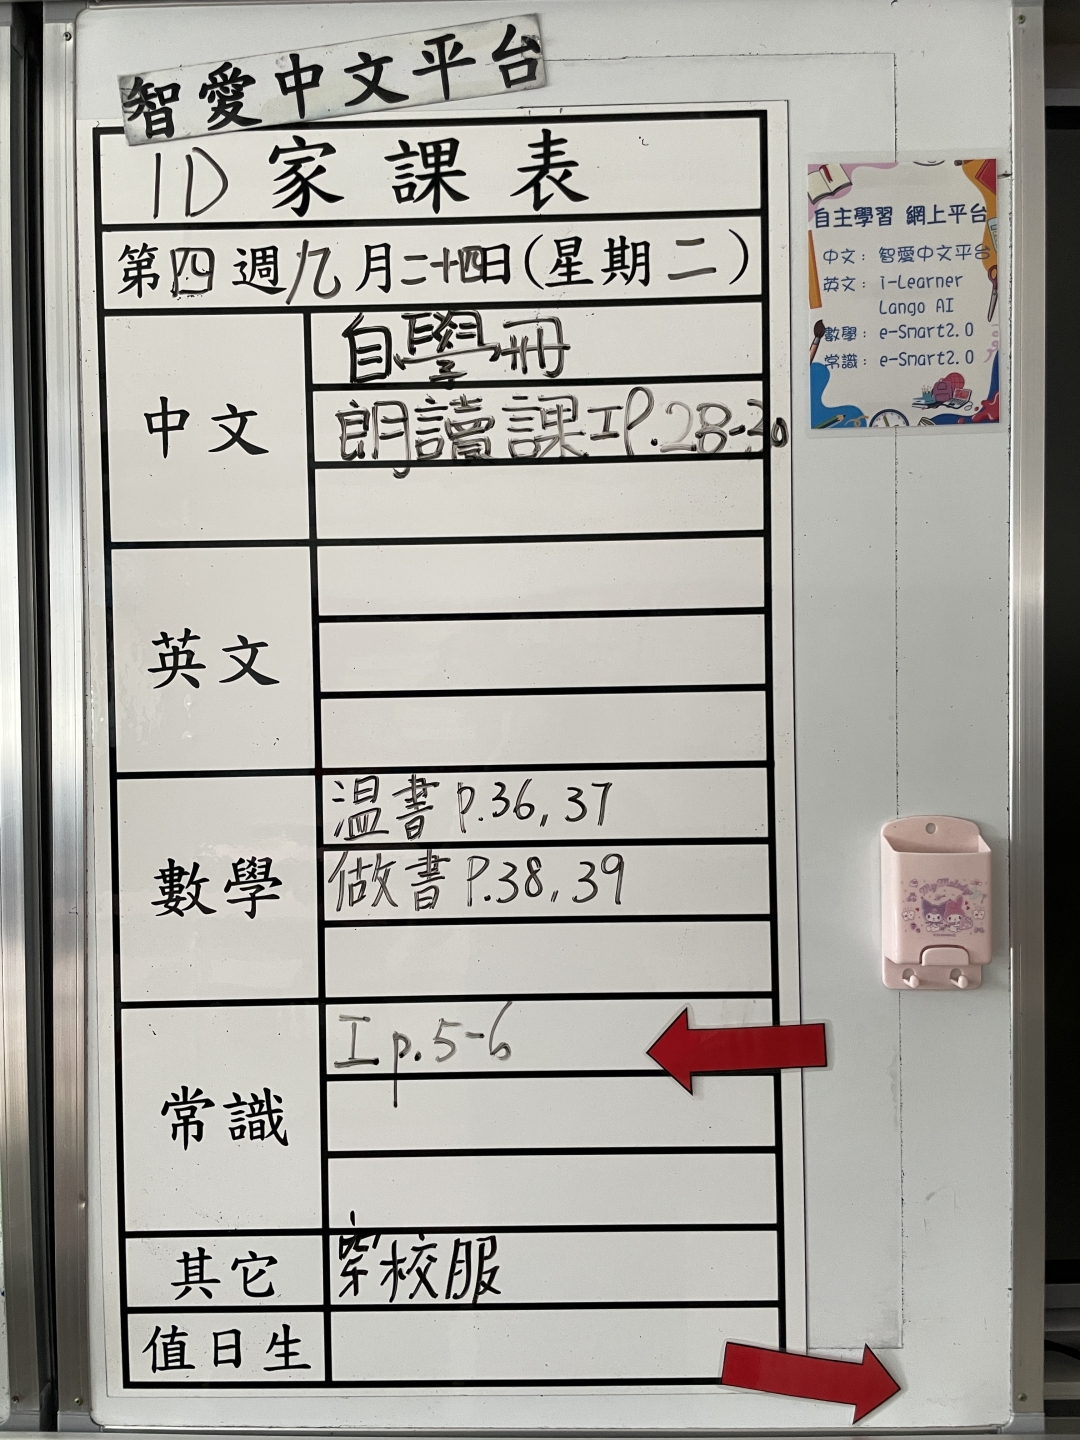 智愛中文平台
1D 家課表
第四週九月二十四日(星期二)
中文
自學冊
朗讀課工P.28-30
英文
數學
温書 p.36, 37
做書 P.38, 39
常識
工 p.5-6
其它
穿校服
值日生
自主學習 網上平台
中文：智愛中文平台
英文：i-Learner
Lango AI
數學：e-Smart2.0
常識：e-Smart2.0
My Melody